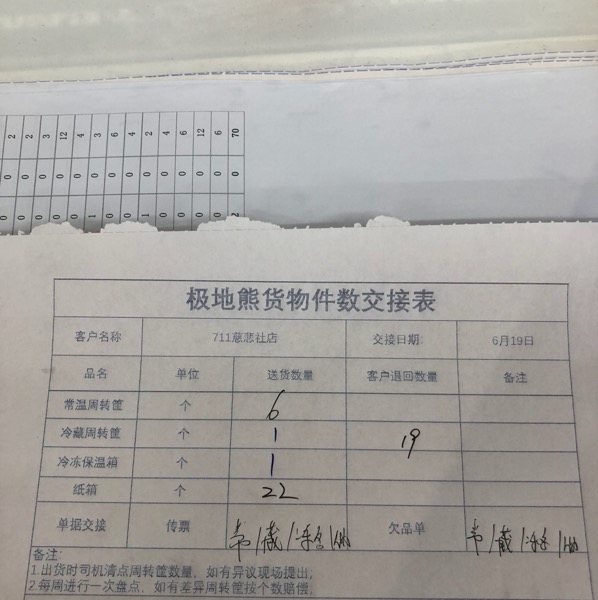 2 2 3 12 4 3 6 4 2 4 6 12 6 70
0 0 0 0 0 0 0 0 0 0 0 0 0 0
0 0 0 0 0 1 0 0 1 0 0 0 0 2
极地熊货物件数交接表
客户名称 711慈悲社店 交接日期: 6月19日
品名 单位 送货数量 客户退回数量 备注
常温周转筐 个 6
冷藏周转筐 个 1 19
冷冻保温箱 个 1
纸箱 个 22
单据交接 传票 常/藏/冻 欠品单 常/藏/冻
备注:
1.出货时司机清点周转筐数量,如有异议现场提出;
2.每周进行一次盘点,如有差异周转筐按个数赔偿;